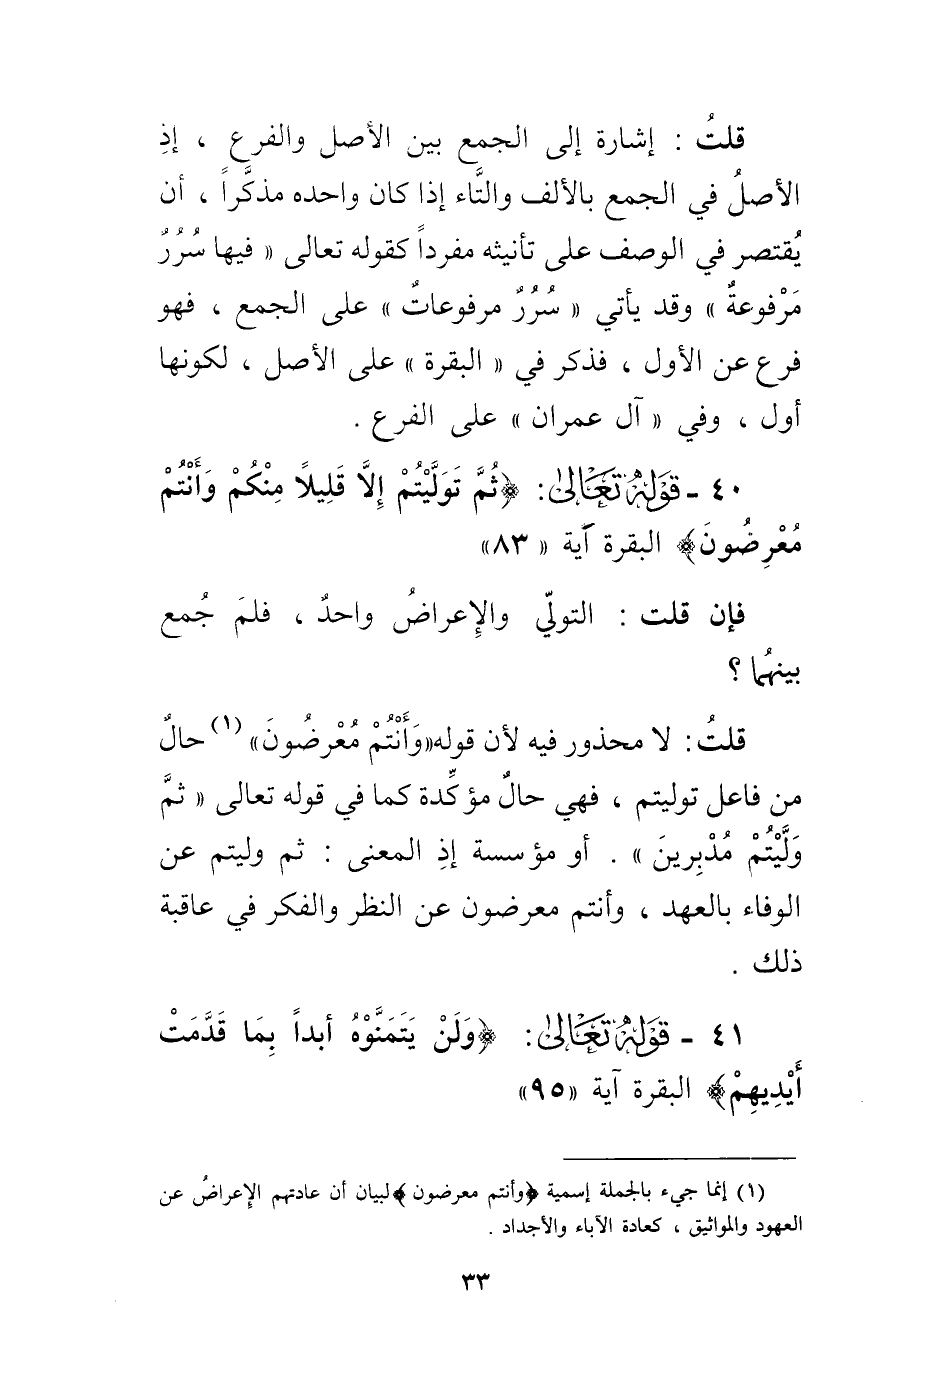 قلتُ : إشارة إلى الجمع بين الأصل والفرع ، إذِ
الأصلُ في الجمع بالألف والتَّاء إذا كان واحده مذكَّراً ، أن
يُقتصر في الوصف على تأنيثه مفرداً كقوله تعالى « فيها سُرُرٌ
مَرْفوعةٌ » وقد يأتي « سُرُرٌ مرفوعاتٌ » على الجمع ، فهو
فرع عن الأول ، فذكر في « البقرة » على الأصل ، لكونها
أول ، وفي « آل عمران » على الفرع .
٤٠ - قَوْلُهُ تَعَالَىٰ: ﴿ثُمَّ تَوَلَّيْتُمْ إِلَّا قَلِيلاً مِنْكُمْ وَأَنْتُمْ
مُعْرِضُونَ﴾ البقرة آية « ٨٣»
فإن قلت : التولّي والإعراضُ واحدٌ ، فلمَ جُمع
بينهُما ؟
قلتُ: لا محذور فيه لأن قوله«وَأَنْتُمْ مُعْرضُونَ» (١) حالٌ
من فاعل توليتم ، فهي حالٌ مؤكِّدة كما في قوله تعالى « ثمَّ
وَلَّيْتُمْ مُدْبِرينَ » . أو مؤسسة إذِ المعنى : ثم وليتم عن
الوفاء بالعهد ، وأنتم معرضون عن النظر والفكر في عاقبة
ذلك .
٤١ - قَوْلُهُ تَعَالَىٰ: ﴿وَلَنْ يَتَمَنَّوْهُ أبداً بِمَا قَدَّمَتْ
أَيْدِيهِمْ﴾ البقرة آية «٩٥»
(١) إنما جيء بالجملة إسمية ﴿وأنتم معرضون ﴾لبيان أن عادتهم الإعراضُ عن
العهود والمواثيق ، كعادة الآباء والأجداد .
٣٣